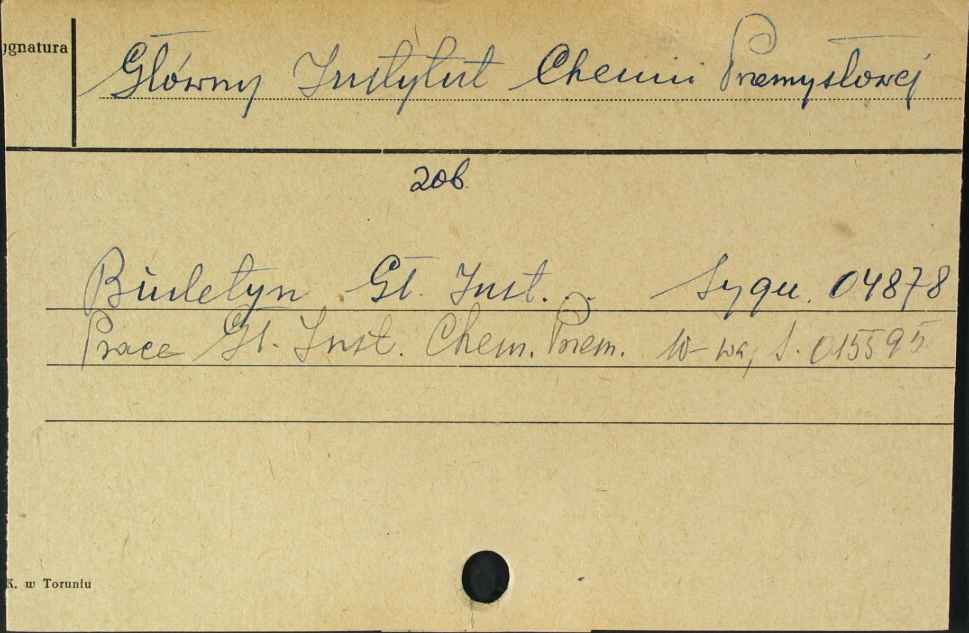 ygnatura
Główny Instytut Chemii Przemysłowej
zob.
Biuletyn Gł. Inst. Sygn. 04878
Prace Gł. Inst. Chem. Przem. W-wa, S. 015595
K. w Toruniu